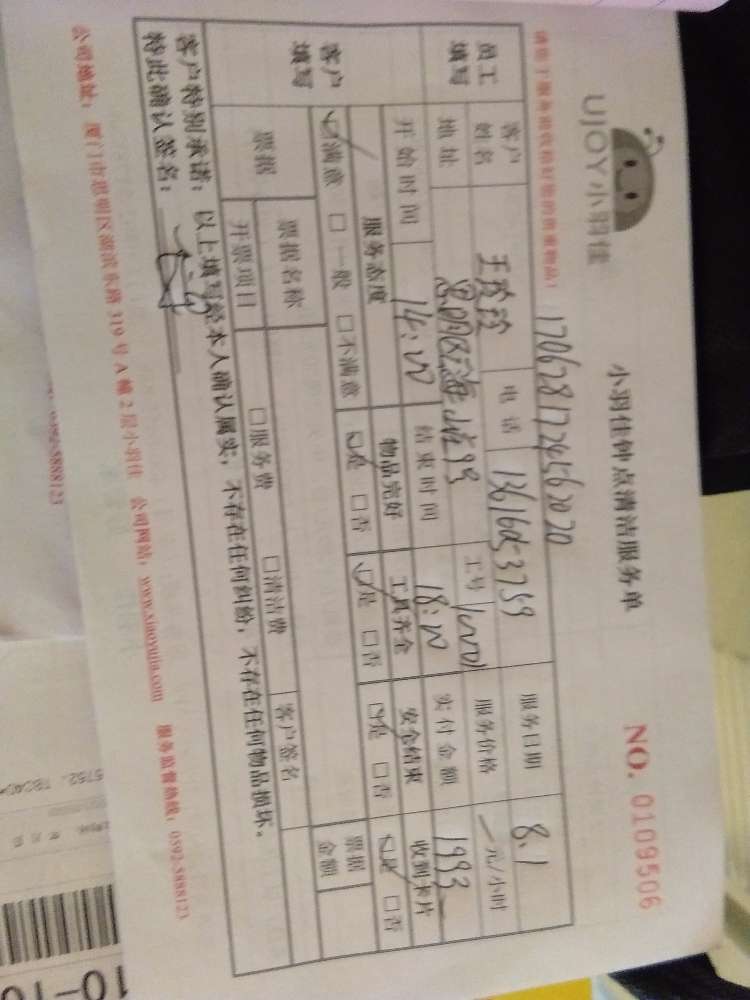 UJOY小羽佳
小羽佳钟点清洁服务单
NO. 0109506
请您于服务前收拾好您的贵重物品!
员工填写
客户姓名
电话
服务日期 8.1
地址
工号
服务价格 一元/小时
开始时间 14:00
结束时间 18:00
实付金额 1993
客户填写
服务态度 物品完好 工具齐全 安全结束 收到卡片
☑满意 □一般 □不满意 ☑是 □否 ☑是 □否 ☑是 □否 ☑是 □否
票据
票据名称
票据金额
开票项目 □服务费 □清洁费 客户签名
客户特别承诺:以上填写经本人确认属实,不存在任何纠纷,不存在任何物品损坏。
特此确认签名:
公司地址:厦门市思明区湖滨东路319号A幢2层小羽佳 公司网站:www.xiaoyujia.com 服务监督热线:0592-5888123
10-10